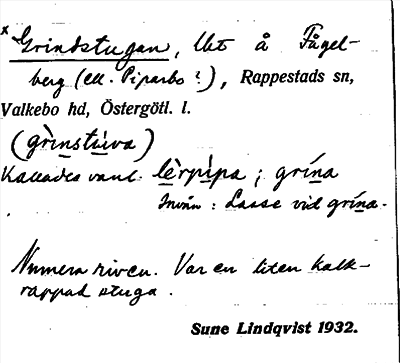 x Grindstugan, lht å Fågel-
berg (ell. Piparbo?), Rappestads sn,
Valkebo hd, Östergötl. l.
(grìnstùva)
Kallades vanl. lèrpìpa ; grína
Invån : Lasse vid grína.
Numera riven. Var en liten kalk-
rappad stuga.
Sune Lindqvist 1932.